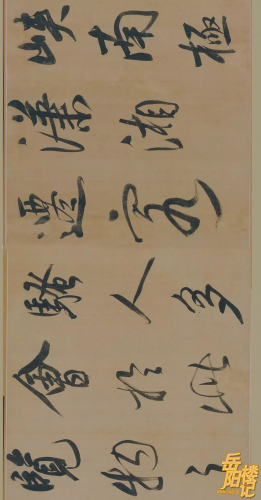 峽南極
瀟湘
遷客
騷人多
會於此
覽物之
岳阳楼记